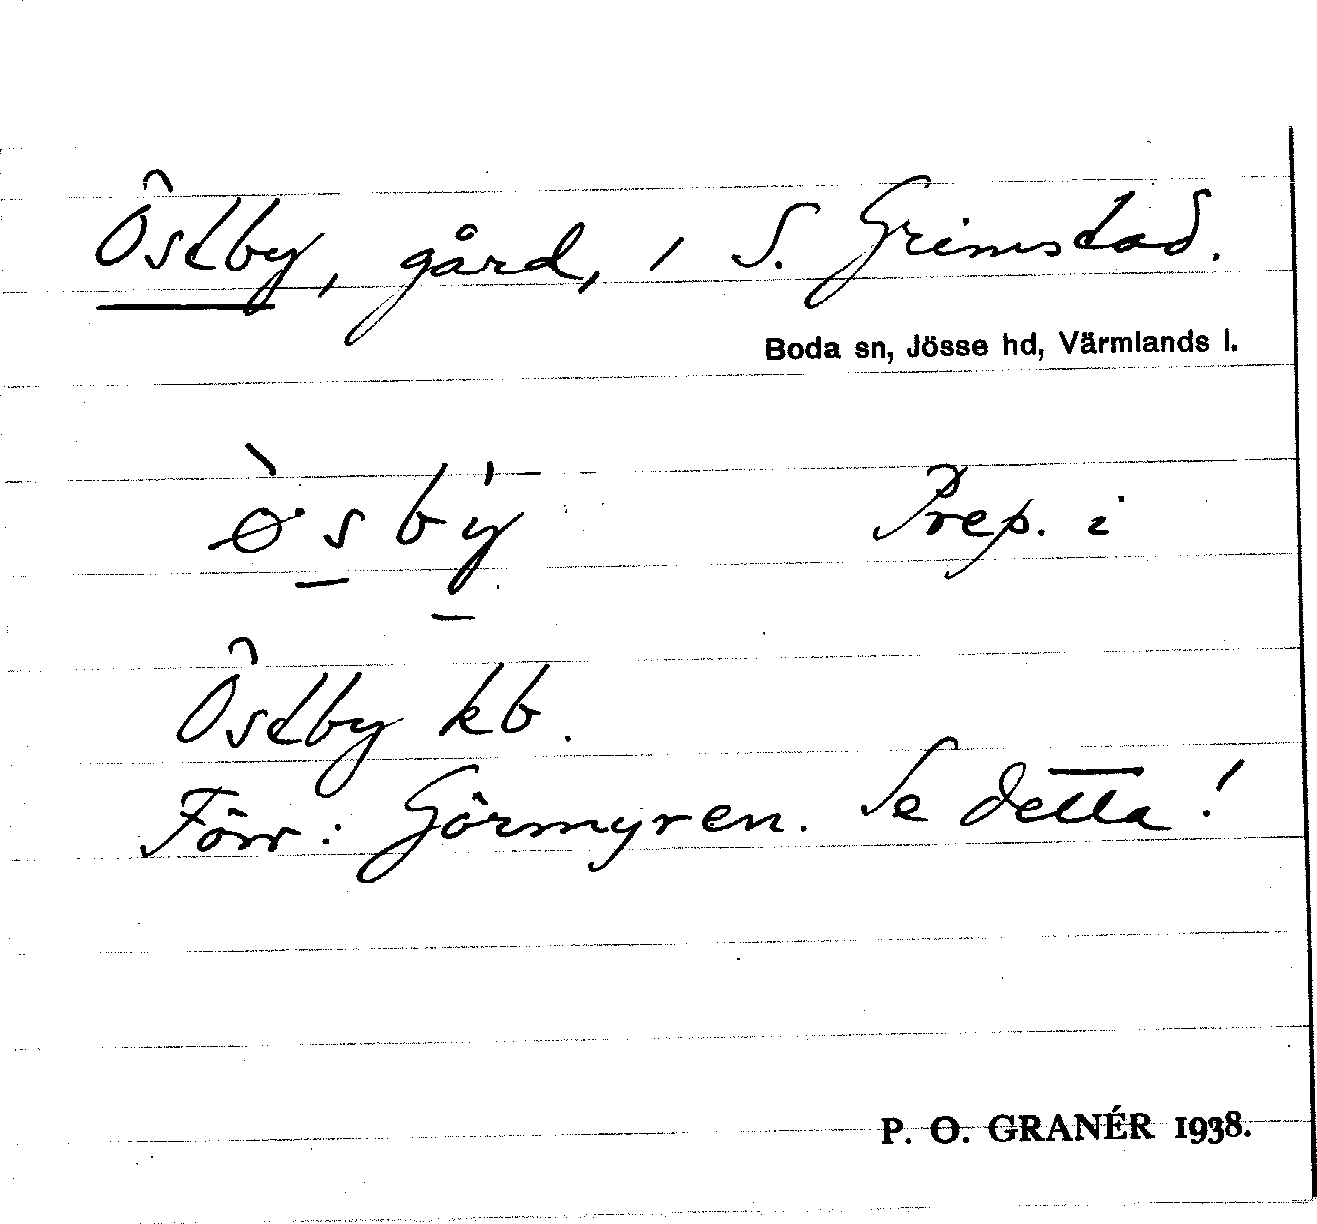 Östby, gård, i S. Grimstad.
Boda sn, Jösse hd, Värmlands l.
ø̀sbý Prep. i
Östby kb.
Förr: Görmyren. Se detta!
P. O. GRANÉR 1938.